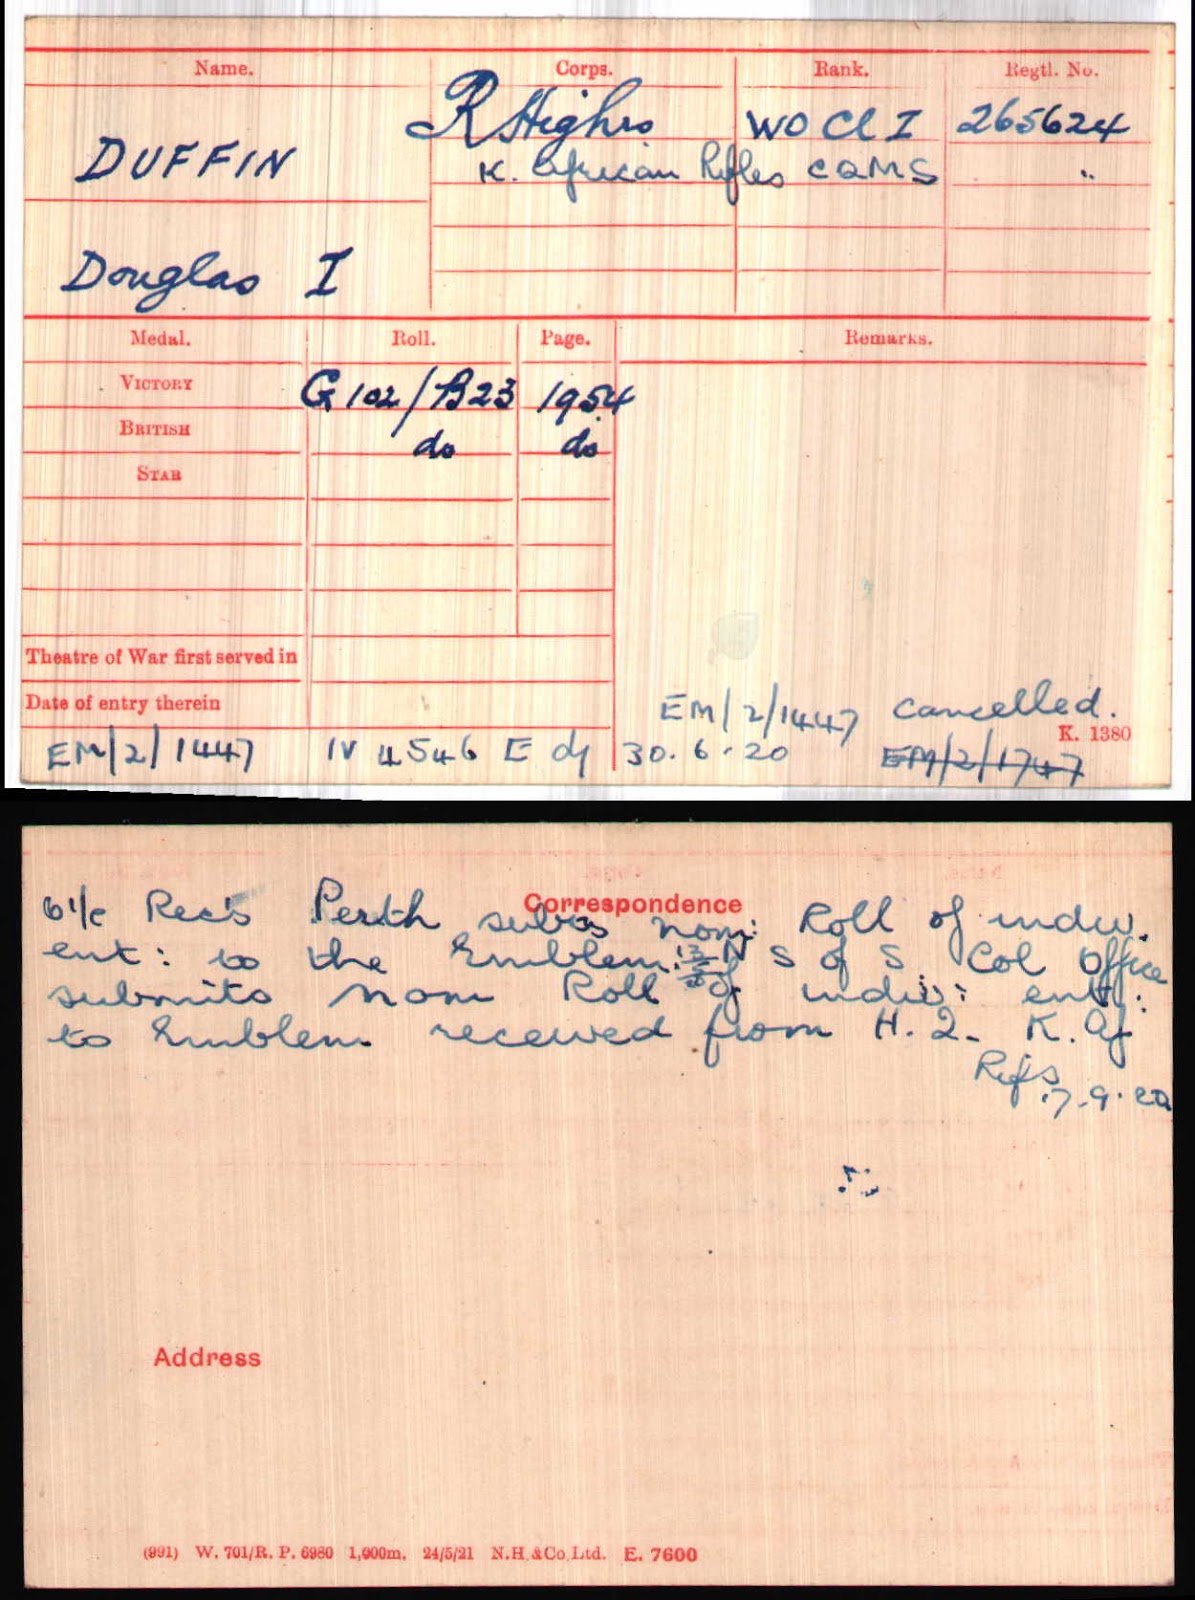 Name. Corps. Rank. Regtl. No.
R Highrs WO Cl I 265624
DUFFIN K. African Rifles CQMS "
Douglas I
Medal. Roll. Page. Remarks.
VICTORY G 102/B23 1954
BRITISH do do
STAR
Theatre of War first served in
Date of entry therein
EM/2/1447 cancelled.
K. 1380
EM/2/1447 IV 4546 E d/ 30.6.20 EM/2/1747
Correspondence
o i/c Rec's Perth subs nom: Roll of indiv.
ent: to the Emblem. S of S. Col Office
submits nom Roll of indiv: ent:
to Emblem received from H.Q. K. Af
Rifs 7.9.20
Address
(991) W. 701/R. P. 6980 1,000m. 24/5/21 N.H.&Co.Ltd. E. 7600